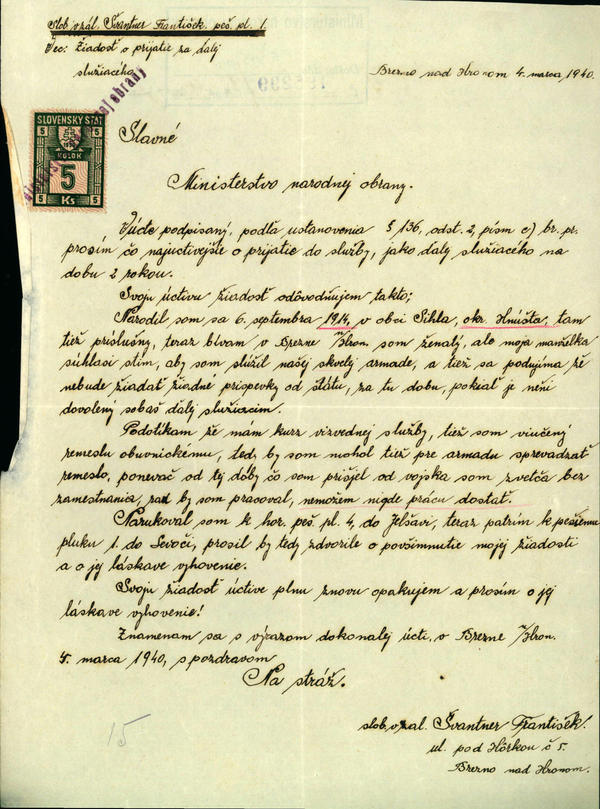 Slob. v zál. Švantner František peš. pl. 1.
Vec: Žiadosť o prijatie za ďalej
slúžiaceho
Brezno nad Hronom 4. marca 1940.
SLOVENSKÝ ŠTÁT
5 5
KOLOK
5
5 5
Ks
Slavné
Ministerstvo narodnéj obrany.
Núďte podpisaný, podľa ustanovenia § 136, odst. 2, písm c) br. pr.
prosím čo najuctivejšte o prijatie do služby, jako ďalej slúžiaceho na
dobu 2 rokou.
Svoju úctivu žiadosť odôvodňujem takto;
Narodil som sa 6. septembra 1914, v obci Sihla, okr. Hnúšťa, tam
tiež príslušny, teraz bývam v Brezne n/Hron. som ženatý, ale moja manželka
súhlasí stim, aby som slúžil našej skvelej armade, a tiež sa podujíma že
nebude žiadať žiadne príspevky od štátu, za tu dobu, pokiaľ je néni
dovolený sobaš ďalej slúžiacim.
Podotíkam že mám kurz vízvednej služby, tiež som viučený
remeslu obuvníckemu, tedy by som mohol tiež pre armadu sprevadzať
remeslo, ponevač od tej dôby čo som prišjel od vojska som zvetča bez
zamestnania, rad by som pracoval, nemožem nigde prácu dostať.
Narukoval som k hor. peš. pl. 4, do Jelšavi, teraz patrím k pešiemu
pluku 1. do Levoči, prosil by tedy zdvorile o povšimnutie mojej žiadosti
a o jej láskave vyhovenie.
Svoju žiadosť úctive plnu znovu opakujem a prosím o jej
láskave vyhovenie!
Znamenam sa s výrazom dokonalej úcti, v Brezne n/Hron.
4. marca 1940, s pozdravom
Na stráž.
15
slob. v zal. Švantner František.
ul. pod Hôrkou č 5.
Brezno nad Hronom.